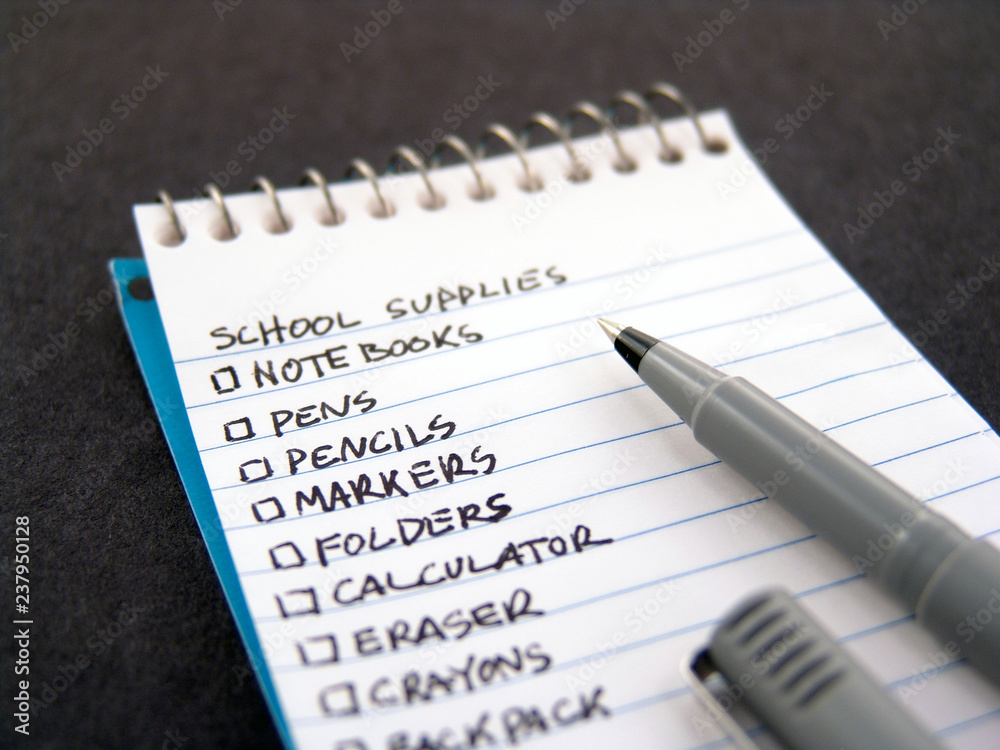 SCHOOL SUPPLIES
NOTEBOOKS
PENS
PENCILS
MARKERS
FOLDERS
CALCULATOR
ERASER
CRAYONS
BACKPACK
Adobe Stock | #237950128